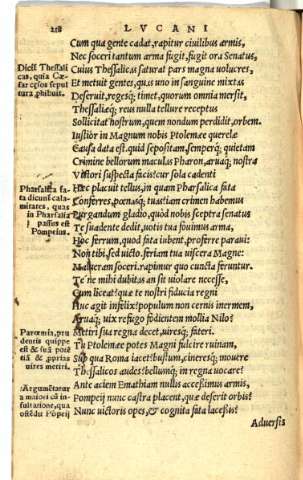 218 LVCANI
Cum qua gente cadat, rapitur ciuilibus armis,
Nec soceri tantum arma fugit, fugit ora Senatus,
Cuius Thessalicas saturat pars magna volucres,
Et metuit gentes, quas uno in sanguine mixtas
Deseruit, regesq; timet, quorum omnia mersit,
Thessaliæq; reus nulla tellure receptus
Sollicitat nostrum, quem nondum perdidit, orbem.
Iustior in Magnum nobis Ptolemæe querelæ
Causa data est. quid sepositam, semperq; quietam
Crimine bellorum maculas Pharon, aruaq; nostra
Victori suspecta facis? cur sola cadenti
Hæc placuit tellus, in quam Pharsalica fata
Conferres, pœnasq; tuas? iam crimen habemus
Purgandum gladio, quod nobis sceptra senatus
Te suadente dedit, uotis tua fouimus arma,
Hoc ferrum, quod fata iubent, proferre paraui:
Non tibi, sed uicto, feriam tua uiscera Magne:
Malueram soceri. rapimur quo cuncta feruntur.
Te ne mihi dubitas an sit uiolare necesse,
Cum liceat? quæ te nostri fiducia regni
Huc agit infelix? populum non cernis inermem,
Aruaq; uix refugo fodientem mollia Nilo?
Metiri sua regna decet, uiresq; fateri.
Tu Ptolemæe potes Magni fulcire ruinam,
Sub qua Roma iacet? bustum, cineresq; mouere
Thessalicos audes? bellumq; in regna uocare?
Ante aciem Emathiam nullis accessimus armis,
Pompeij nunc castra placent, quæ deserit orbis?
Nunc victoris opes, & cognita fata lacessis?
Aduersis
Dicit Thessali
cas, quia Cæ
sar eos sepul
tura phibuit.
Pharsalica fa
ta dicuns cala-
mitates, quas
in Pharsalia
passus est
Pompeius.
Parœmia, pru
dentis quippe
est & sua potē
tiā & pprias
uires metiri.
Argumētatur
a maiori cū in-
sultatione, qua
ostēdit Pōpeij